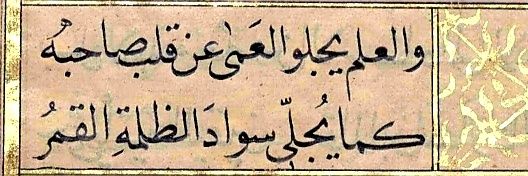 والعلم يجلو العَمىٰ عن قلب صاحبهُ
كما يُجلّي سوادَ الظلمةِ القمرُ